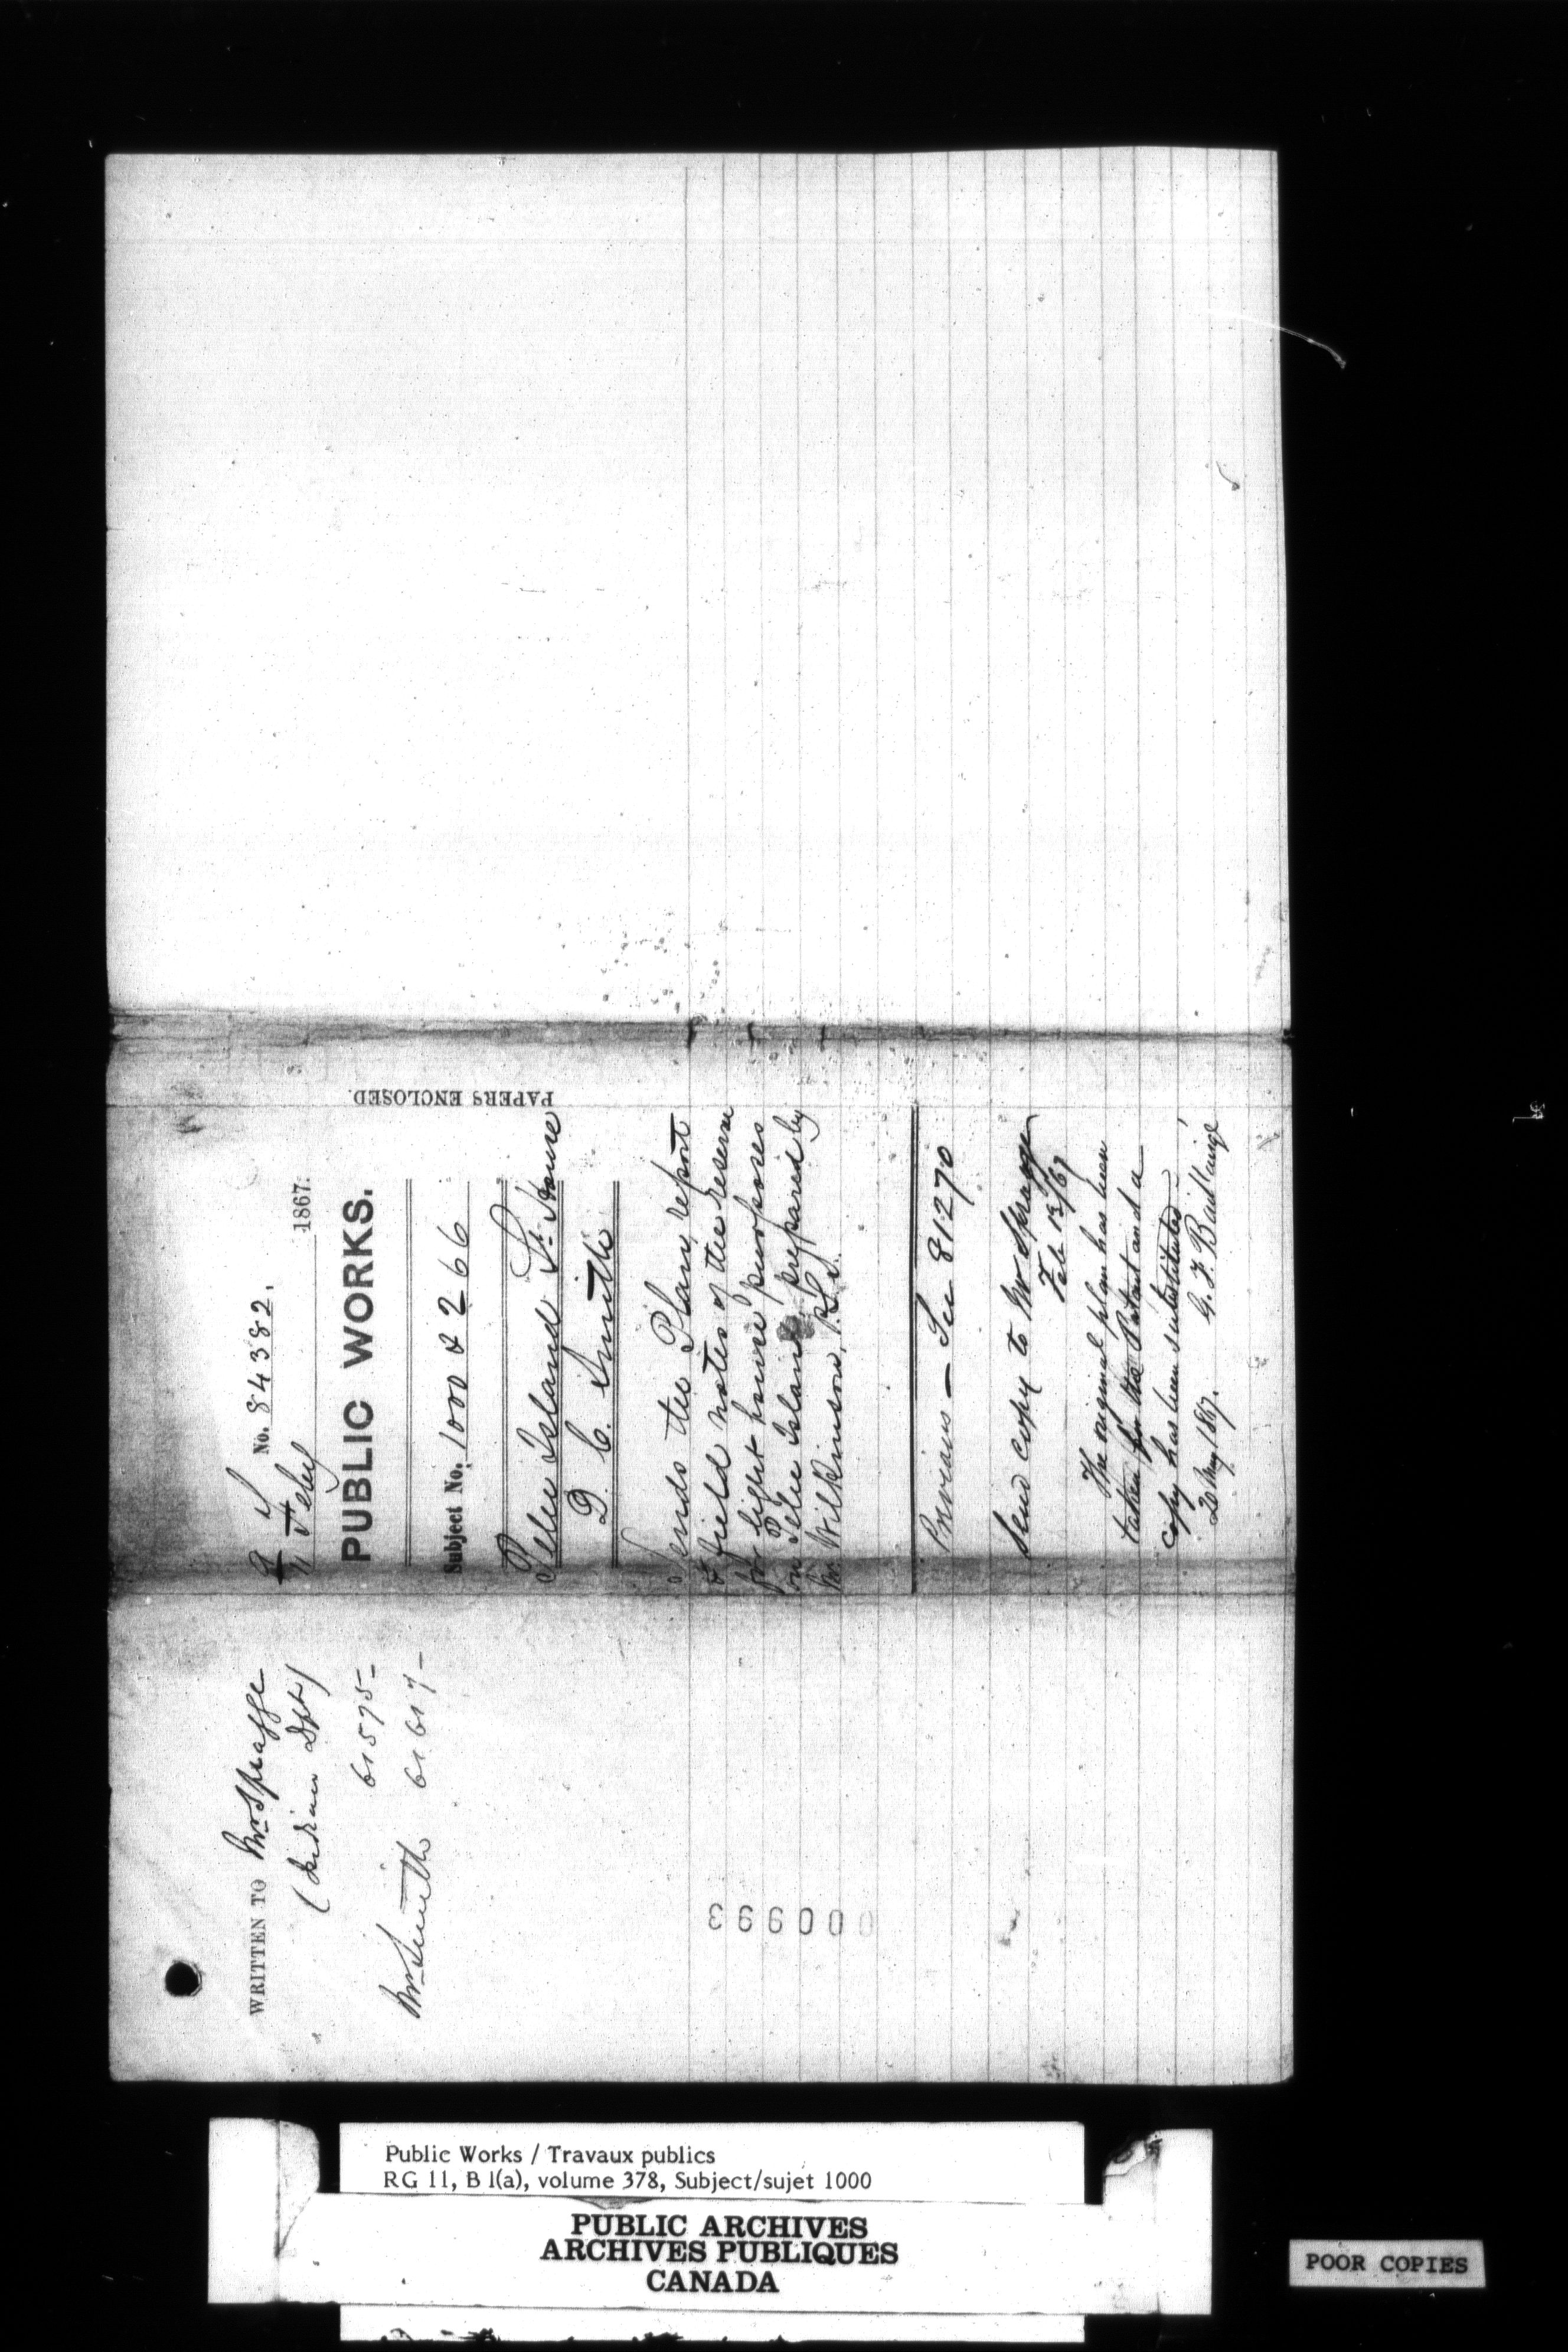 WRITTEN TO Mr Spragge
(Indian Dpt)
61575-
Mr Smith 61617-
000993
No. 84382.
11 Feby 1867.
PUBLIC WORKS.
Subject No. 1000 & 266
Pelee Island Lt. House
D. C. Smith
Sends the Plan, report
& field notes of the reserve
for light house purposes
on Pelee Island prepared by
Mr. Wilkinson, P.L.S.
Previous — See 81270
Send copy to Mr Spragge
Feb 13/67
The original plan has been
taken for the Patent and a
copy has been substituted
20 May 1867. G. F. Baillairgé
PAPERS ENCLOSED.
Public Works / Travaux publics
RG 11, B 1(a), volume 378, Subject/sujet 1000
PUBLIC ARCHIVES
ARCHIVES PUBLIQUES
CANADA
POOR COPIES